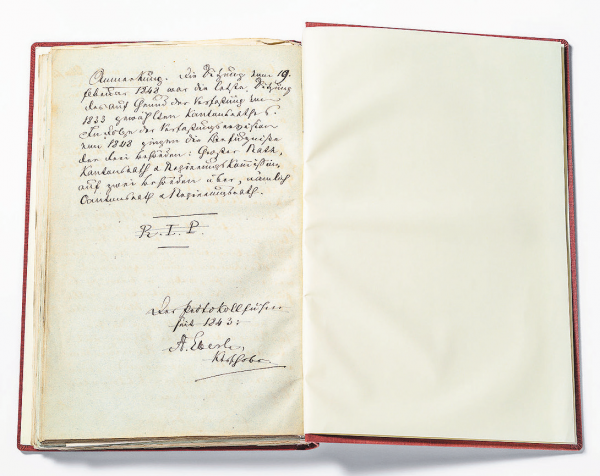 Anmerkung. Die Sitzung vom 19.
Februar 1848 war die letzte Sitzung
des auf Grund der Verfassung von
1833 gewählten Kantonsrathes.
In Folge der Verfassungsrevision
von 1848 gingen die Befugnisse
der drei Behörden: Großer Rath,
Kantonsrath & Regierungskommission
auf zwei Behörden über, nämlich
Cantonsrath & Regierungsrath.
R. I. P.
Der Protokollführer
seit 1843:
A. Eberle,